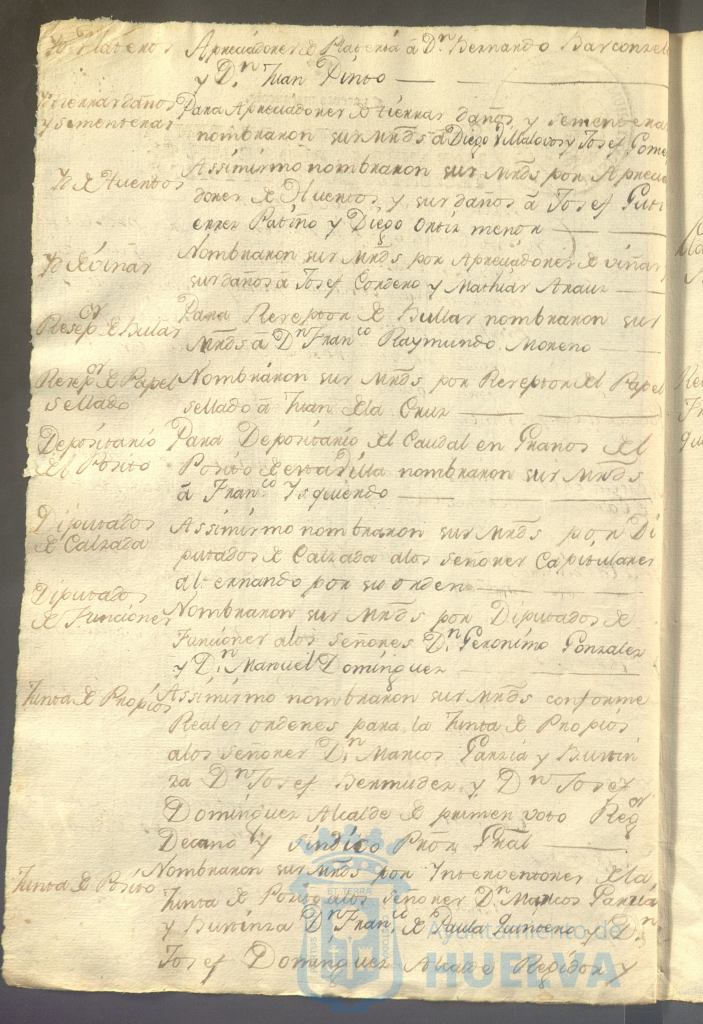 Yd Plateros
Apreciadores de Platería á Dn. Bernardo Barconzel
y Dn. Juan Pinto
Yd tierras daños
y sementeras
Para Apreciadores de tierras daños y sementeras
nombraron sus Mrds á Diego Villalovos y Josef Gome
Yd de Huertos
Assimismo nombraron sus Mrds por Aprecia
dores de Huertos y sus daños á Josef Guti
errez Patiño y Diego Ortiz menor
Yd de viñas
Nombraron sus Mrds por Apreciadores de viñas
sus daños á Josef Cordero y Mathias Arauz
Resepor de Bulas
Para Reseptor de Bullas nombraron sus
Mrds á Dn Franco Raymundo Moreno
Resepor de Papel
sellado
Nombraron sus Mrds por Reseptor del Papel
sellado á Juan dela Cruz
Depositario
del Posito
Para Depositario del Caudal en Granos del
Posito de esta Villa nombraron sus Mrds
á Franco Ysquierdo
Diputados
de Calzada
Assimismo nombraron sus Mrds por Di
putados de Calzada alos señores Capitulares
alternando por su orden
Diputados
de Funciones
Nombraron sus Mrds por Diputados de
Funciones alos señores Dn. Geronimo Gonzales
y Dn. Manuel Dominguez
Junta de Propios
Assimismo nombraron sus Mrds conforme
Reales ordenes para la Junta de Propios
alos señores Dn. Marcos Garzia y Burrin
za Dn Josef Bermudez y Dn Josef
Dominguez Alcalde de primer voto Regor
Decano y sindico Pror Gral
Junta de Posito
Nombraron sus Mrds por Interventores dela
Junta de Posito alos señores Dn. Marcos Garzia
y Burrinza Dn Franco de Paula Quintero y Dn.
Josef Dominguez Alcalde Regidor y
Ayuntamiento de
HUELVA